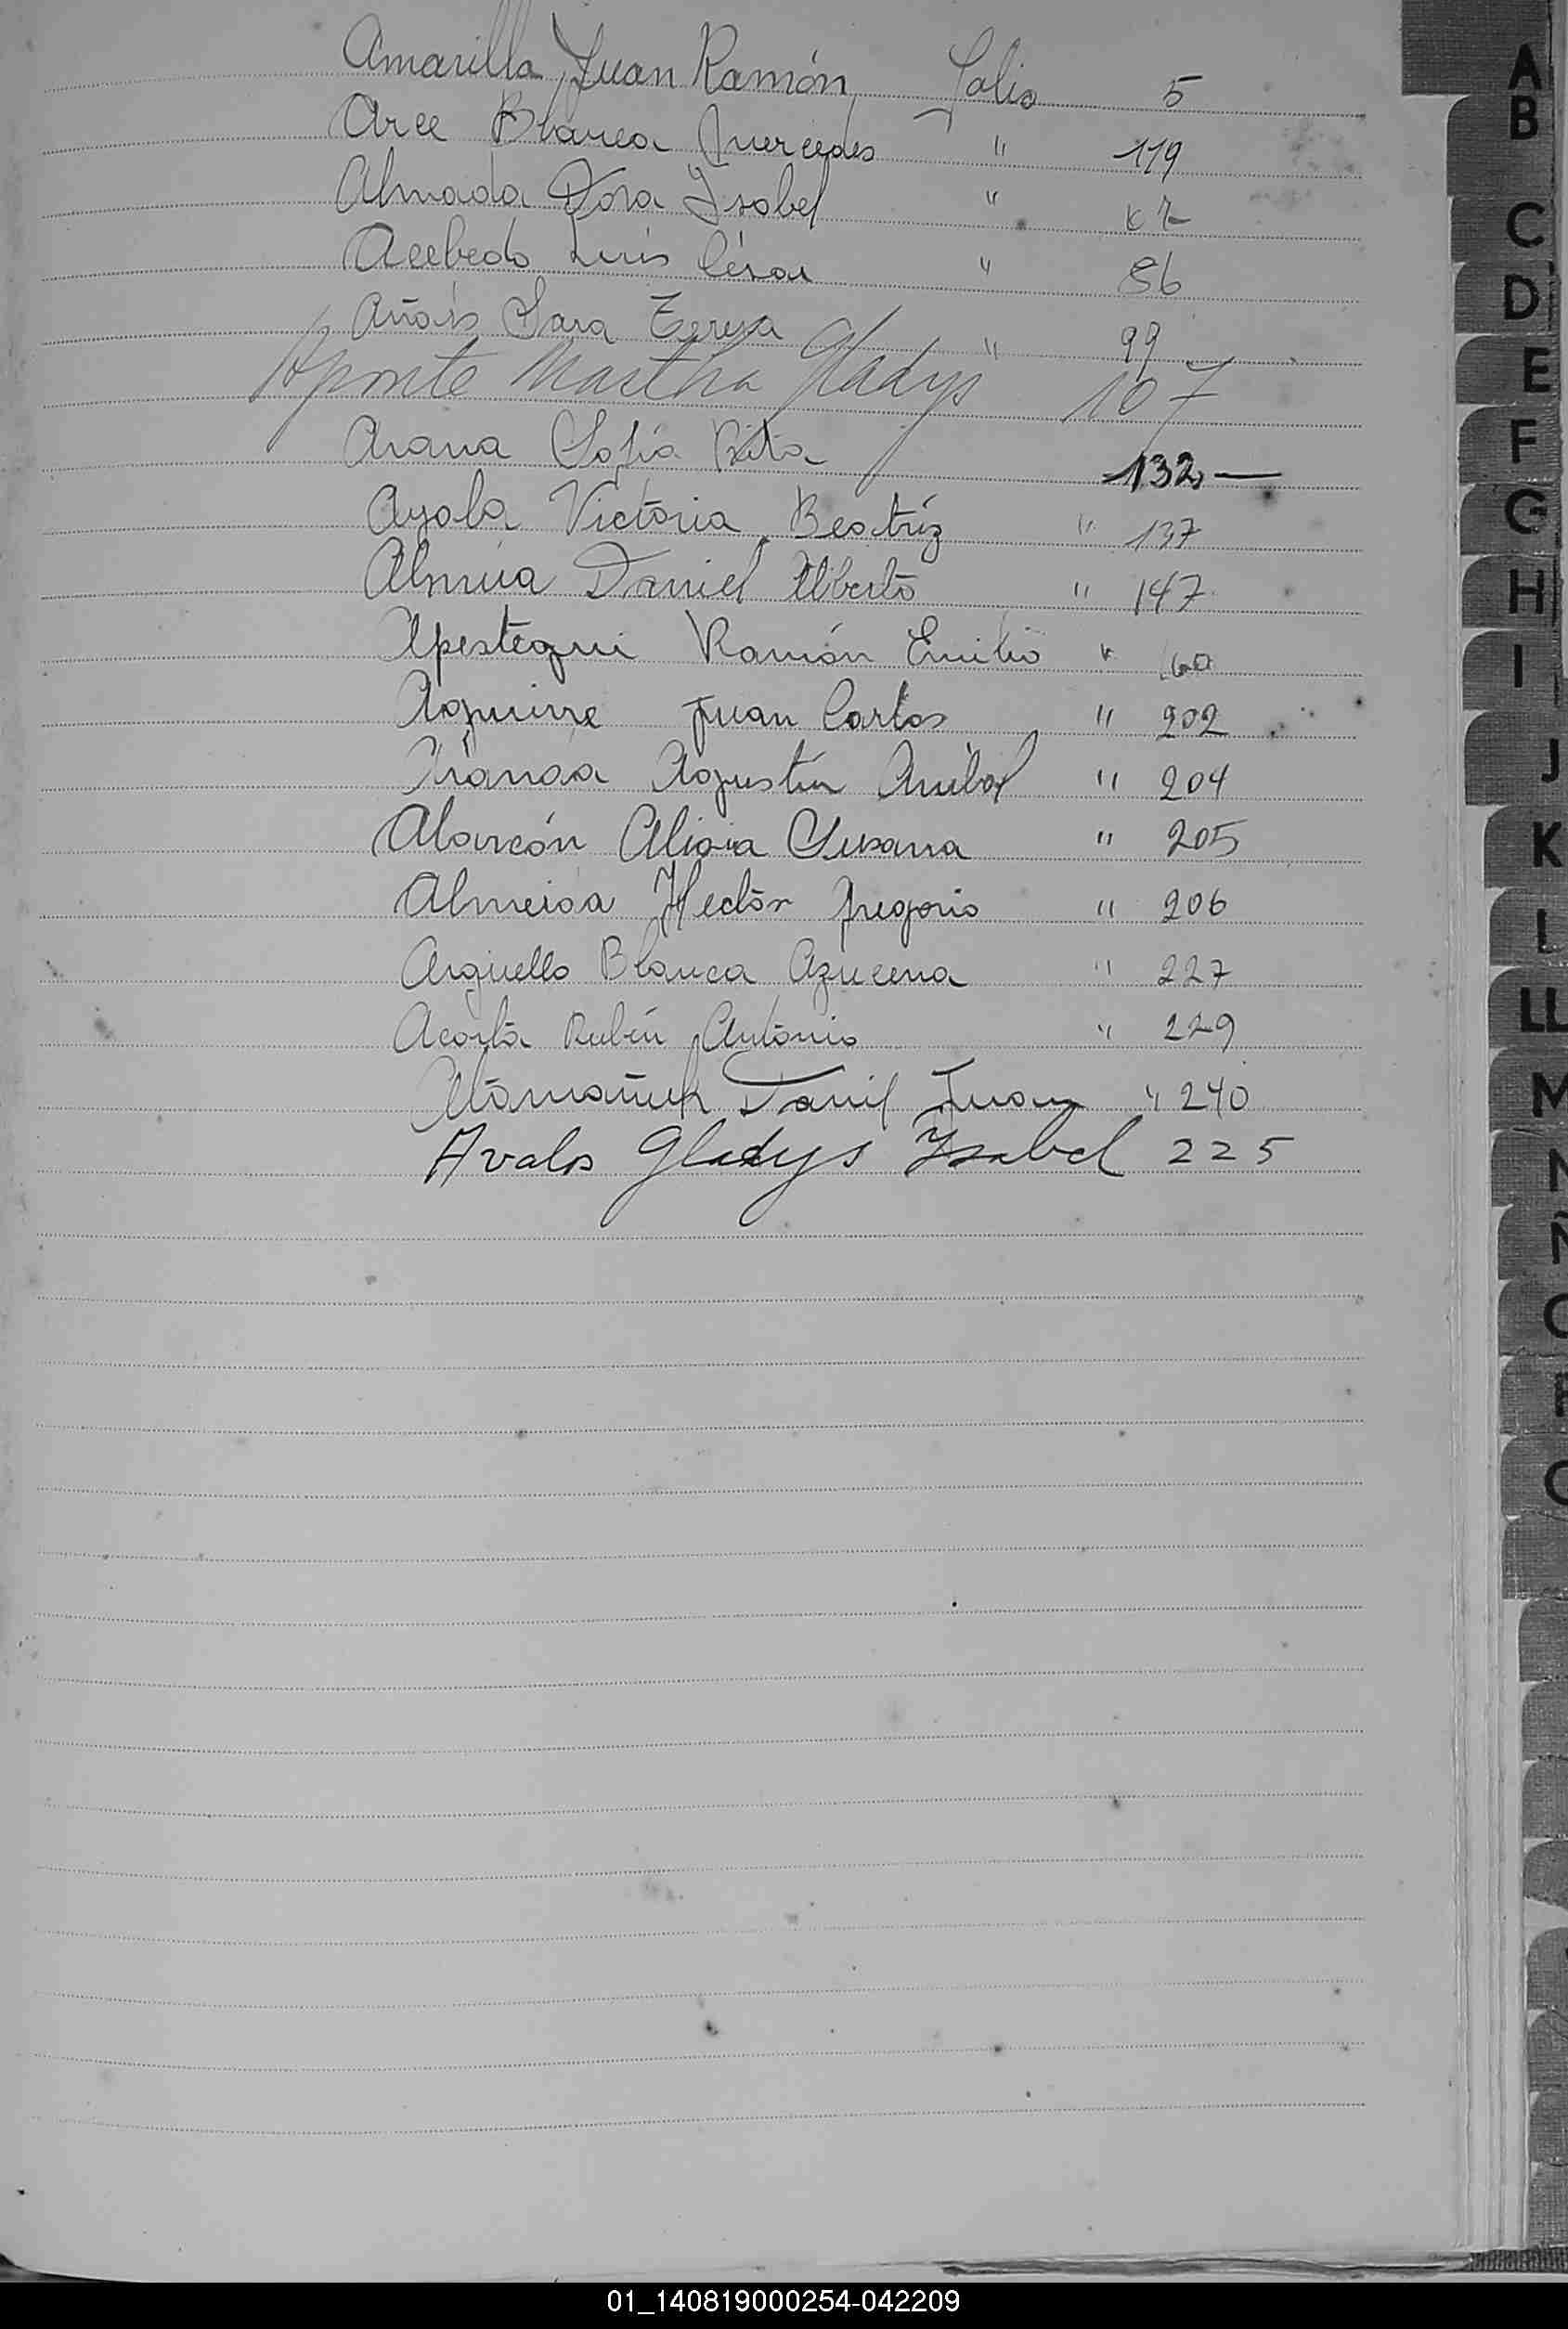 Amarilla Juan Ramón Folio 5
Arce Blanca Mercedes " 119
Almada Dora Isabel "
Acebedo Luis César " 86
Añais Sara Teresa " 99
Aponte Martha Gladys 107
Arana Sofía Rita 132,—
Ayala Victoria Beatríz " 137
Almúa Daniel Alberto " 147
Apestegui Ramón Emilio " 160
Aguirre Juan Carlos " 202
Aranda Agustín Anibal " 204
Alarcón Alicia Susana " 205
Almeida Hector Gregorio " 206
Arguello Blanca Azucena " 227
Acosta Rubén Antonio " 229
Atamañuk Daniel Juan " 240
Avalos Gladys Ysabel 225
A
B
C
D
E
F
G
H
I
J
K
L
LL
M
N
Ñ
O
P
Q
01_140819000254-042209